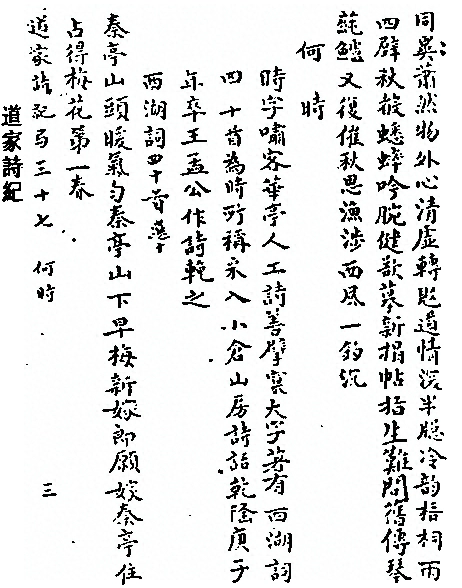 同異蕭然物外心清虛轉覺道情深半牕冷韵梧桐雨
四壁秋蟋蟀吟腕健歡摹新搨帖指生難問舊傳琴
蒓鱸又復催秋思漁涉西風一釣沉
何時
時字嘯客華亭人工詩善擘窠大字著有西湖詞
四十首為時所稱采入小倉山房詩話乾隆庚子
年卒王孟公作詩輓之
西湖詞四十首選十
秦亭山頭暖氣勻秦亭山下早梅新嫁郎願嫁秦亭住
占得梅花第一春
道家詩紀卷三十七 何時 三
道家詩紀